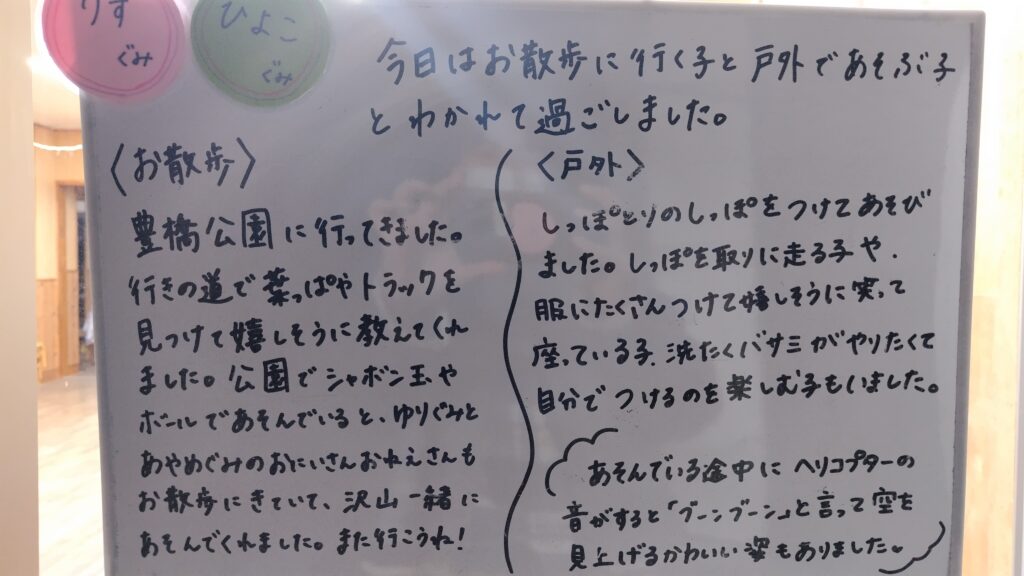 りす
ぐみ
ひよこ
ぐみ
今日はお散歩に行く子と戸外であそぶ子
とわかれて過ごしました。
〈お散歩〉
豊橋公園に行ってきました。
行きの道で葉っぱやトラックを
見つけて嬉しそうに教えてくれ
ました。公園でシャボン玉や
ボールであそんでいると、ゆりぐみと
あやめぐみのおにいさんおねえさんも
お散歩にきていて、沢山一緒に
あそんでくれました。また行こうね!
〈戸外〉
しっぽとりのしっぽをつけてあそび
ました。しっぽを取りに走る子や、
服にたくさんつけて嬉しそうに笑って
座っている子、洗たくバサミがやりたくて
自分でつけるのを楽しむ子もいました。
あそんでいる途中にヘリコプターの
音がすると「ブーンブーン」と言って空を
見上げるかわいい姿もありました。